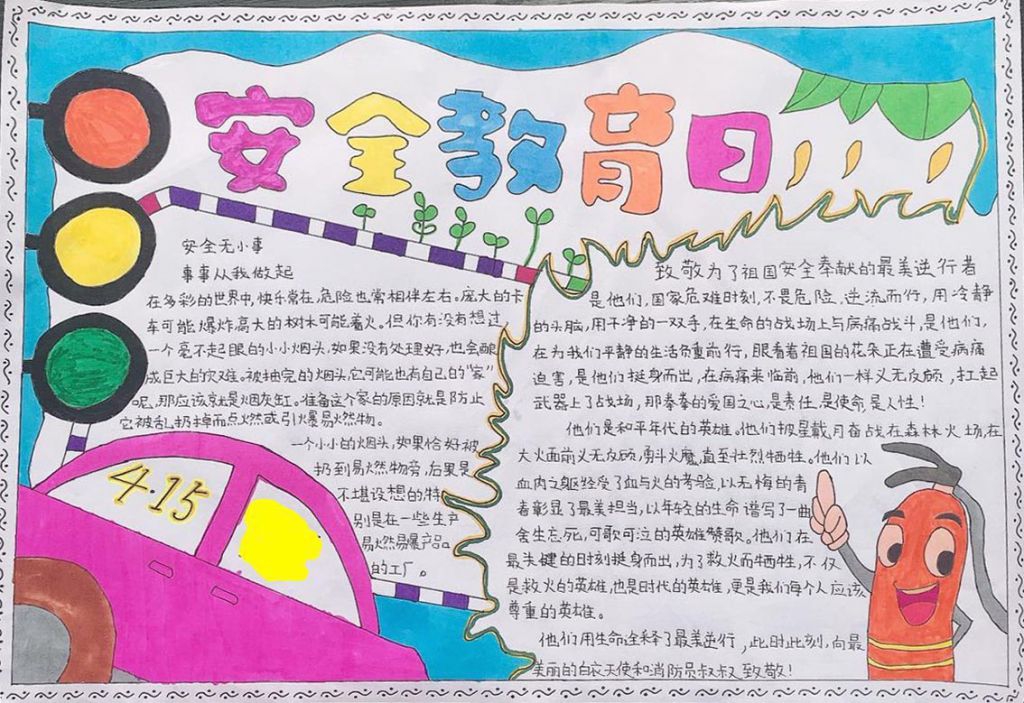 安全教育日
安全无小事
事事从我做起
在多彩的世界中,快乐常在,危险也常相伴左右。庞大的卡
车可能爆炸,高大的树木可能着火。但你有没有想过
一个毫不起眼的小小烟头,如果没有处理好,也会酿
成巨大的灾难。被抽完的烟头,它可能也有自己的“家”
呢,那应该就是烟灰缸。准备这个家的原因就是防止
它被乱扔掉而点火然或引火爆易火然物。
一个小小的烟头,如果恰好被
扔到易燃物旁,后果是
不堪设想的特
别是在一些生产
易燃易爆产品
的工厂。
4.15
致敬为了祖国安全奉献的最美逆行者
是他们,国家危难时刻,不畏危险,逆流而行,用冷静
的头脑,用干净的一双手,在生命的战场上与病痛战斗,是他们,
在为我们平静的生活负重前行,眼看着祖国的花朵正在遭受病痛
迫害,是他们挺身而出,在病痛来临前,他们一样义无反顾,扛起
武器上了战场,那拳拳的爱国之心,是责任,是使命,是人性!
他们是和平年代的英雄。他们披星戴月奋战在森林火场,在
大火面前义无反顾,勇斗火魔,直至壮烈牺牲。他们以
血肉之躯经受了血与火的考验,以无悔的青
春彰显了最美担当,以年轻的生命谱写了一曲
舍生忘死,可歌可泣的英雄赞歌。他们在
最关键的时刻挺身而出,为了救火而牺牲,不仅
是救火的英雄,也是时代的英雄,更是我们每个人应该
尊重的英雄。
他们用生命诠释了最美逆行,此时此刻,向最
美丽的白衣天使和消防员叔叔致敬!